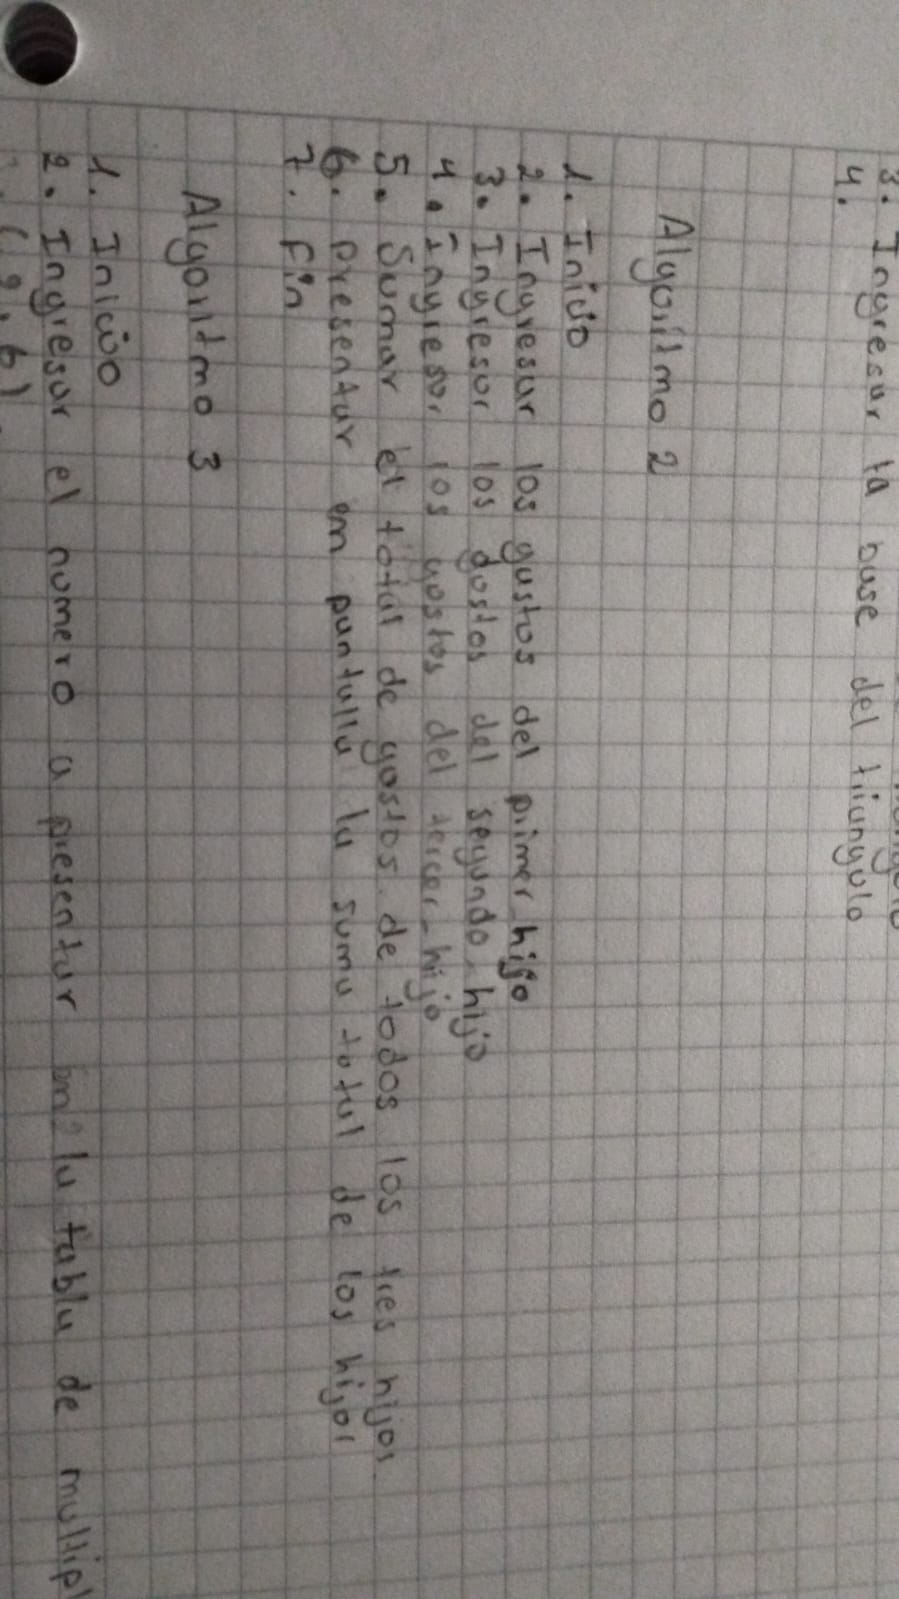 3. Ingresar la base del triangulo
4.
Algoritmo 2
1. Inicio
2. Ingresar los gastos del primer hijo
3. Ingresar los gastos del segundo hijo
4. Ingresar los gastos del tercer hijo
5. Sumar el total de gastos de todos los tres hijos
6. presentar em pantalla la suma total de los hijos
7. Fin
Algoritmo 3
1. Inicio
2. Ingresar el numero a presentar em la tabla de multipl